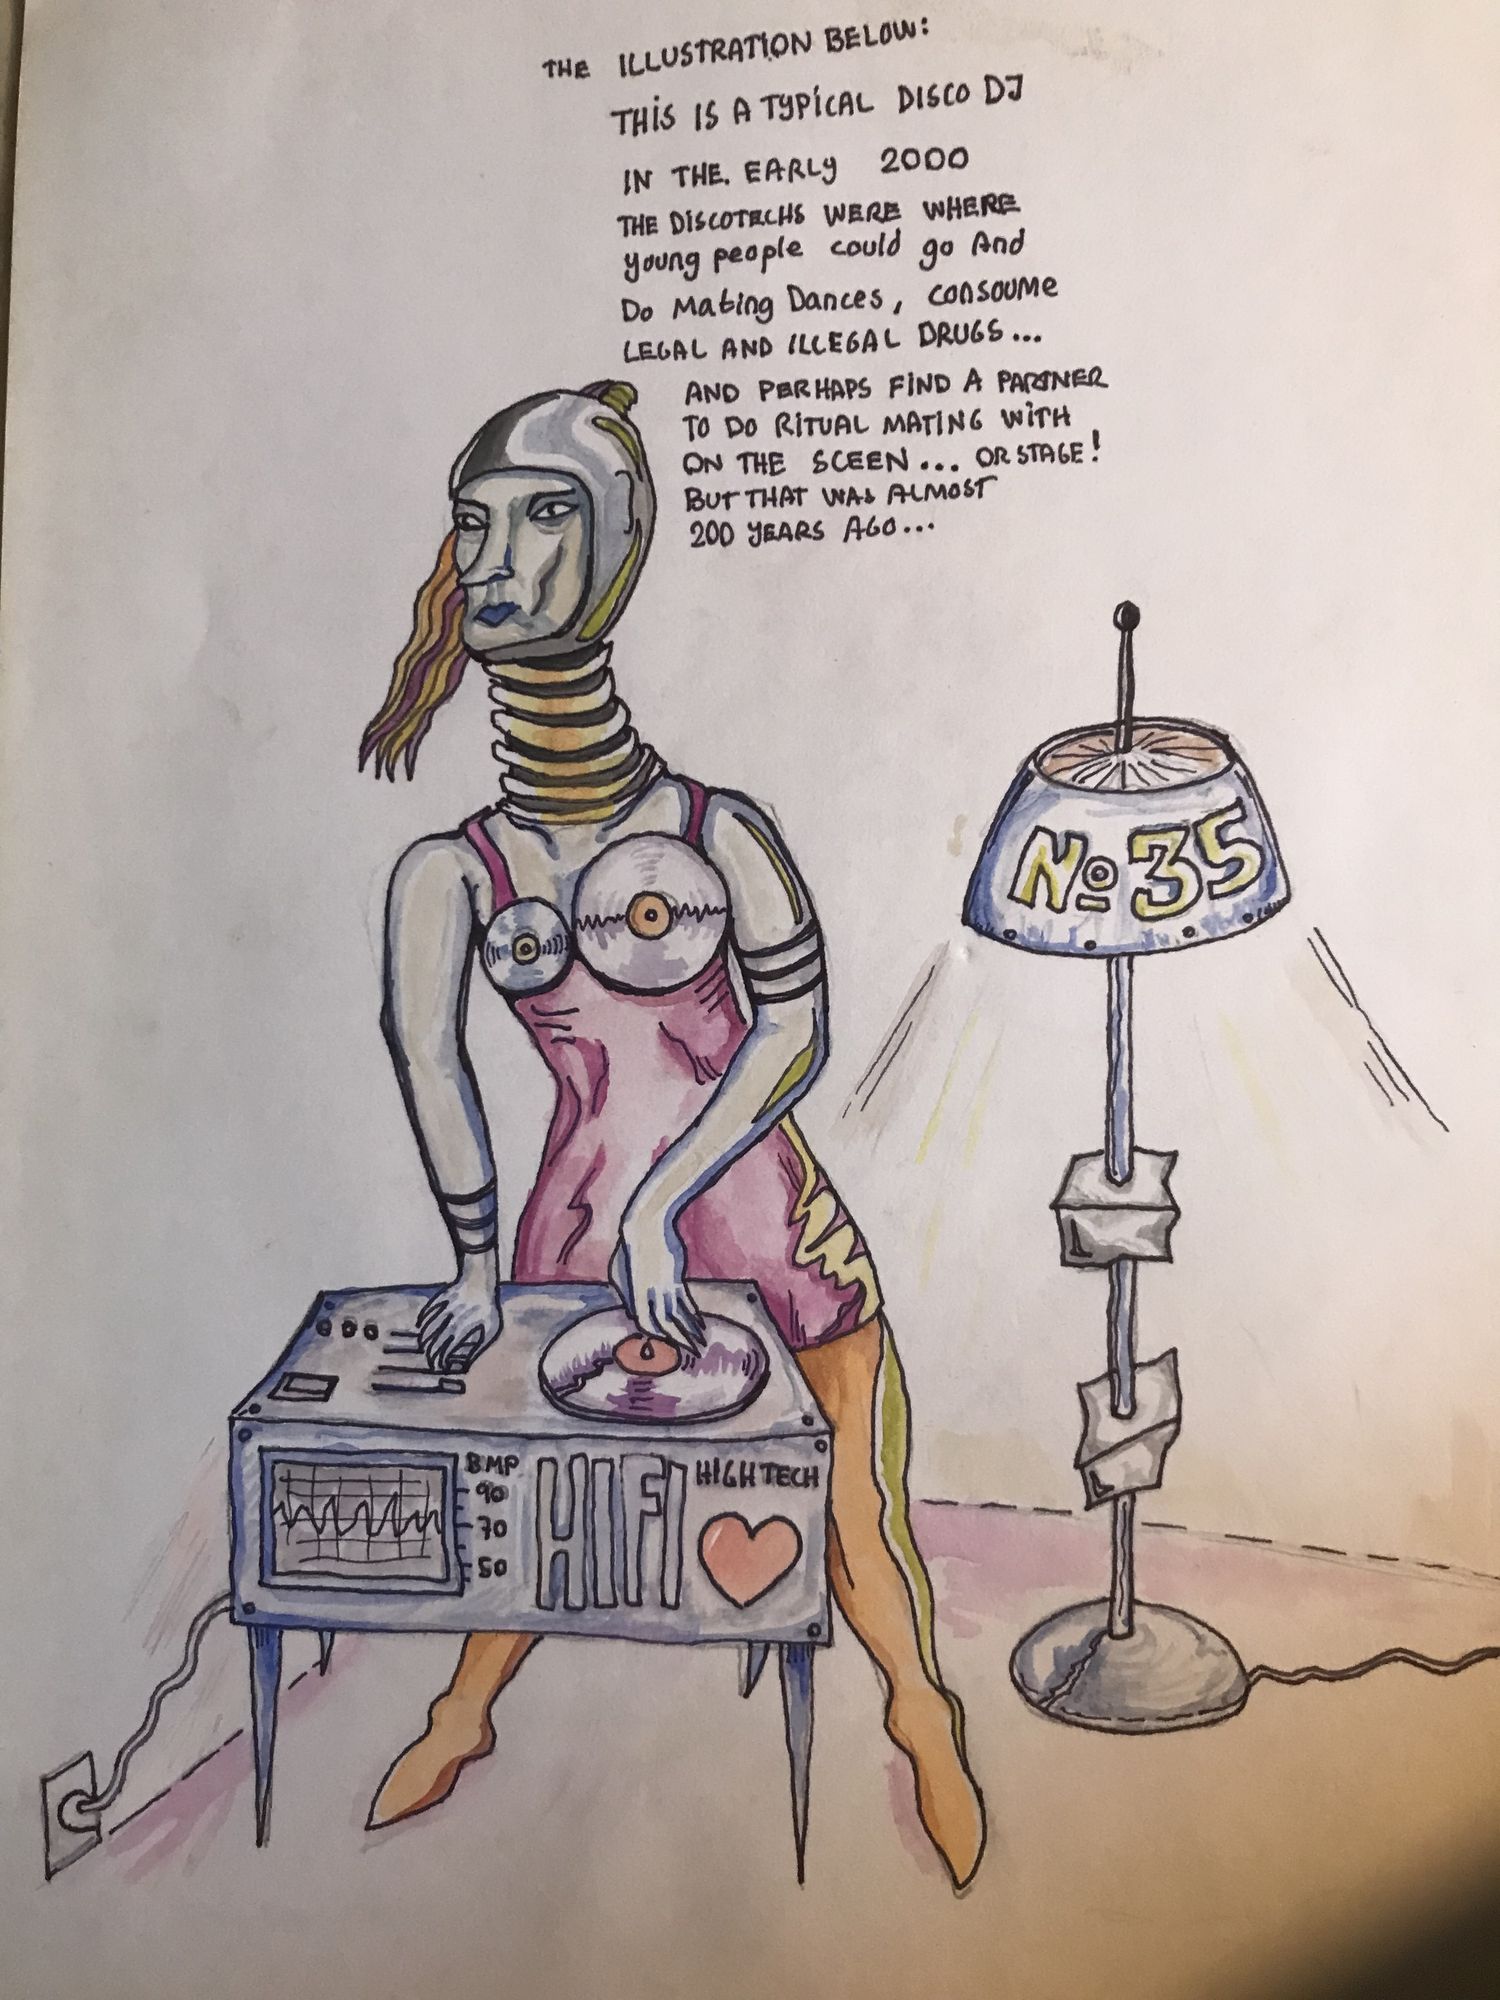 THE ILLUSTRATION BELOW:
THIS IS A TYPICAL DISCO DJ
IN THE. EARLY 2000
THE DISCOTECHS WERE WHERE
young people could go And
Do Mating Dances, consoume
LEGAL AND ILLEGAL DRUGS...
AND PERHAPS FIND A PARTNER
TO DO RITUAL MATING WITH
ON THE SCEEN... OR STAGE!
BUT THAT WAS ALMOST
200 YEARS AGO...
No 35
BMP
90
70
50
HIFI
HIGHTECH